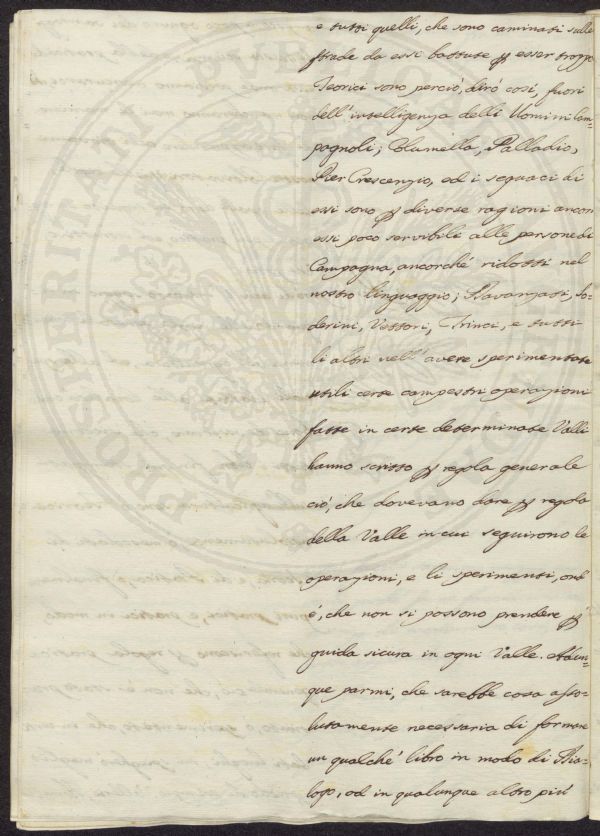 e tutti quelli, che sono caminati sulle
strade da essi battute ꝑ esser troppo
Teorici sono perciò, dirò così, fuori
dell'intelligenza delli Uomini Cam=
pagnoli; Columella, Palladio,
Pier Crescenzio, ed i seguaci di
essi sono ꝑ diverse ragioni ancor
essi poco servibili alle persone di
Campagna, ancorché ridotti nel
nostro linguaggio; Davanzati, So=
derini, Vettori, Trinci, e tutti
li altri nell'avere sperimentate
utili certe campestri operazioni
fatte in certe determinate Valli
hanno scritto ꝑ regola generale
ciò, che dovevano dare ꝑ regola
della Valle in cui seguirono le
operazioni, e li sperimenti, ond'
è, che non si possono prendere ꝑ
guida sicura in ogni Valle. Adun=
que parmi, che sarebbe cosa asso=
lutamente necessaria di formare
un qualché libro in modo di Dia=
logo, od in qualunque altro più
PROSPERITATI PUBLICAE